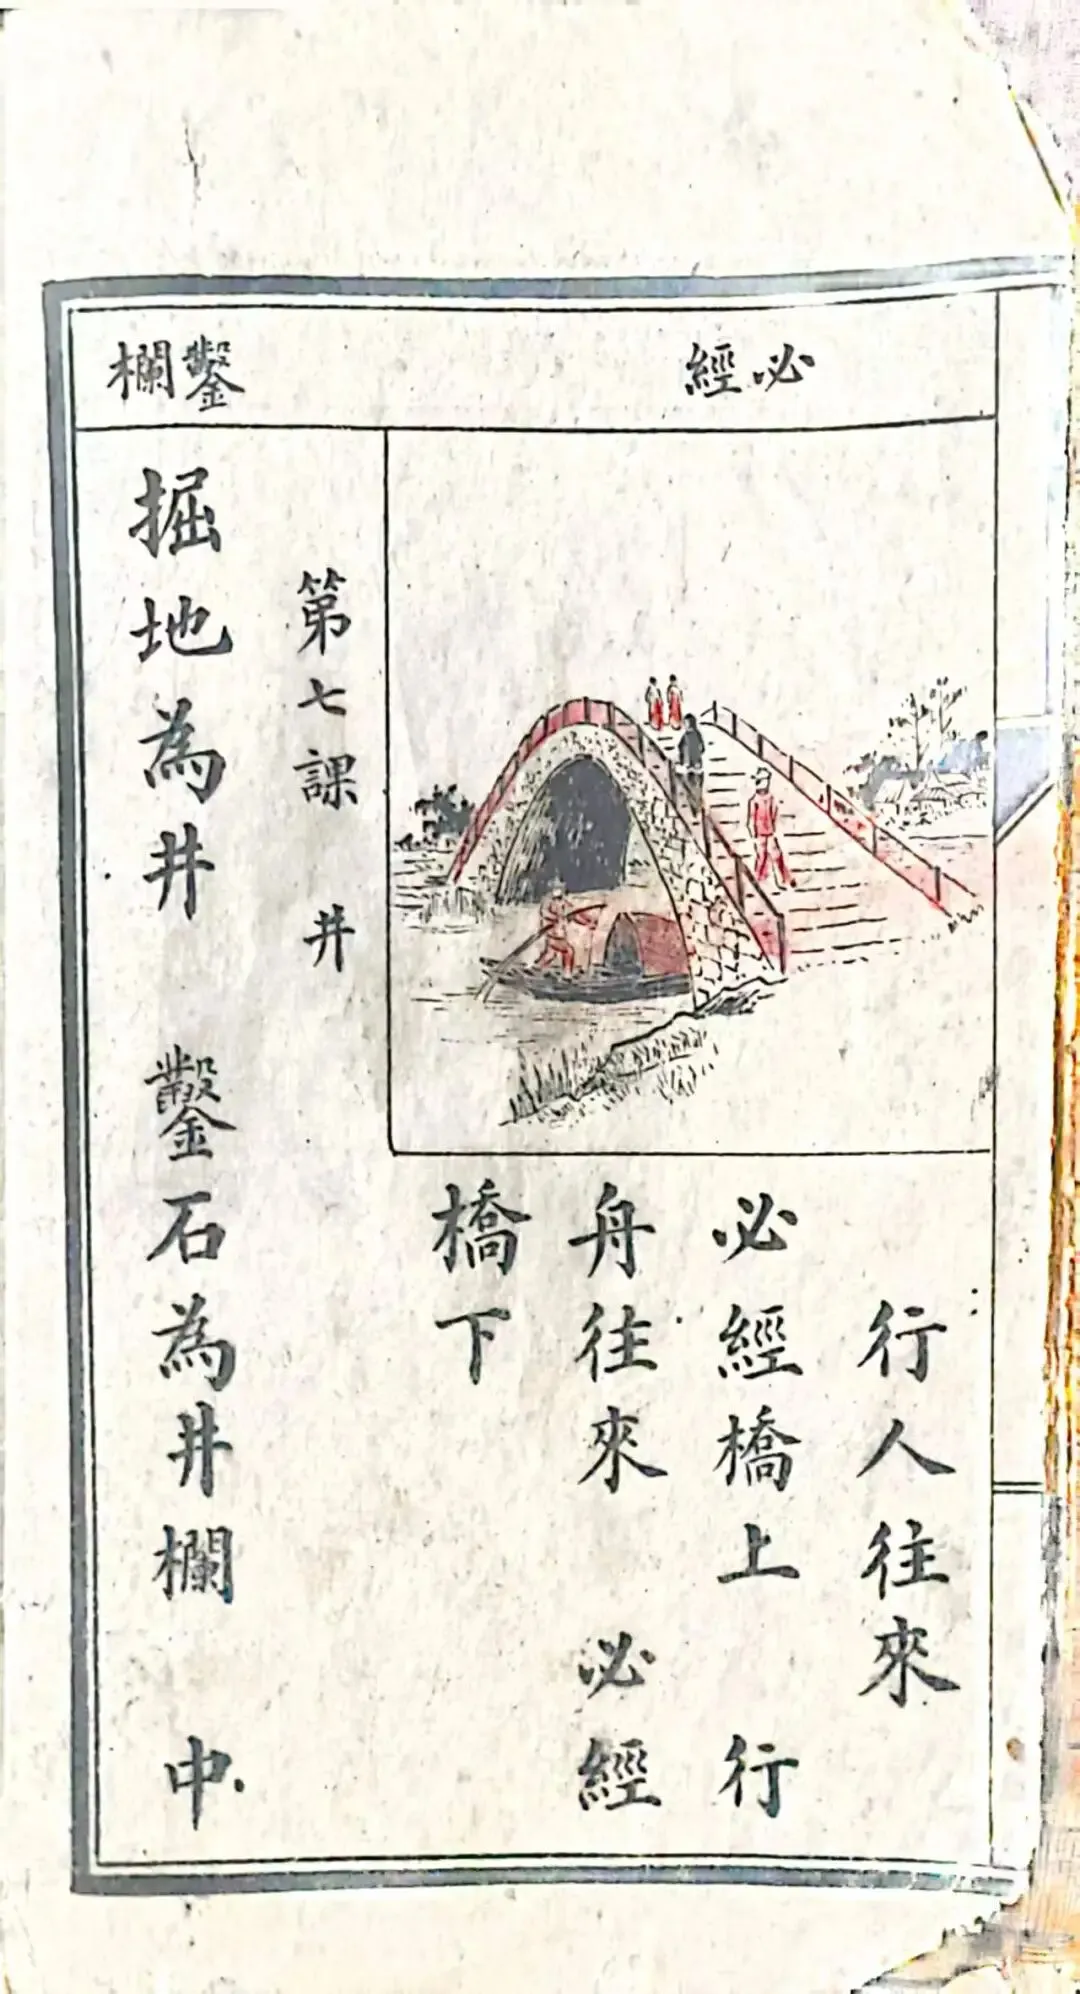 必經
鑿欄
行人往來
必經橋上　行
舟往來　必經
橋下
第七課　井
掘地為井　鑿石為井欄　中